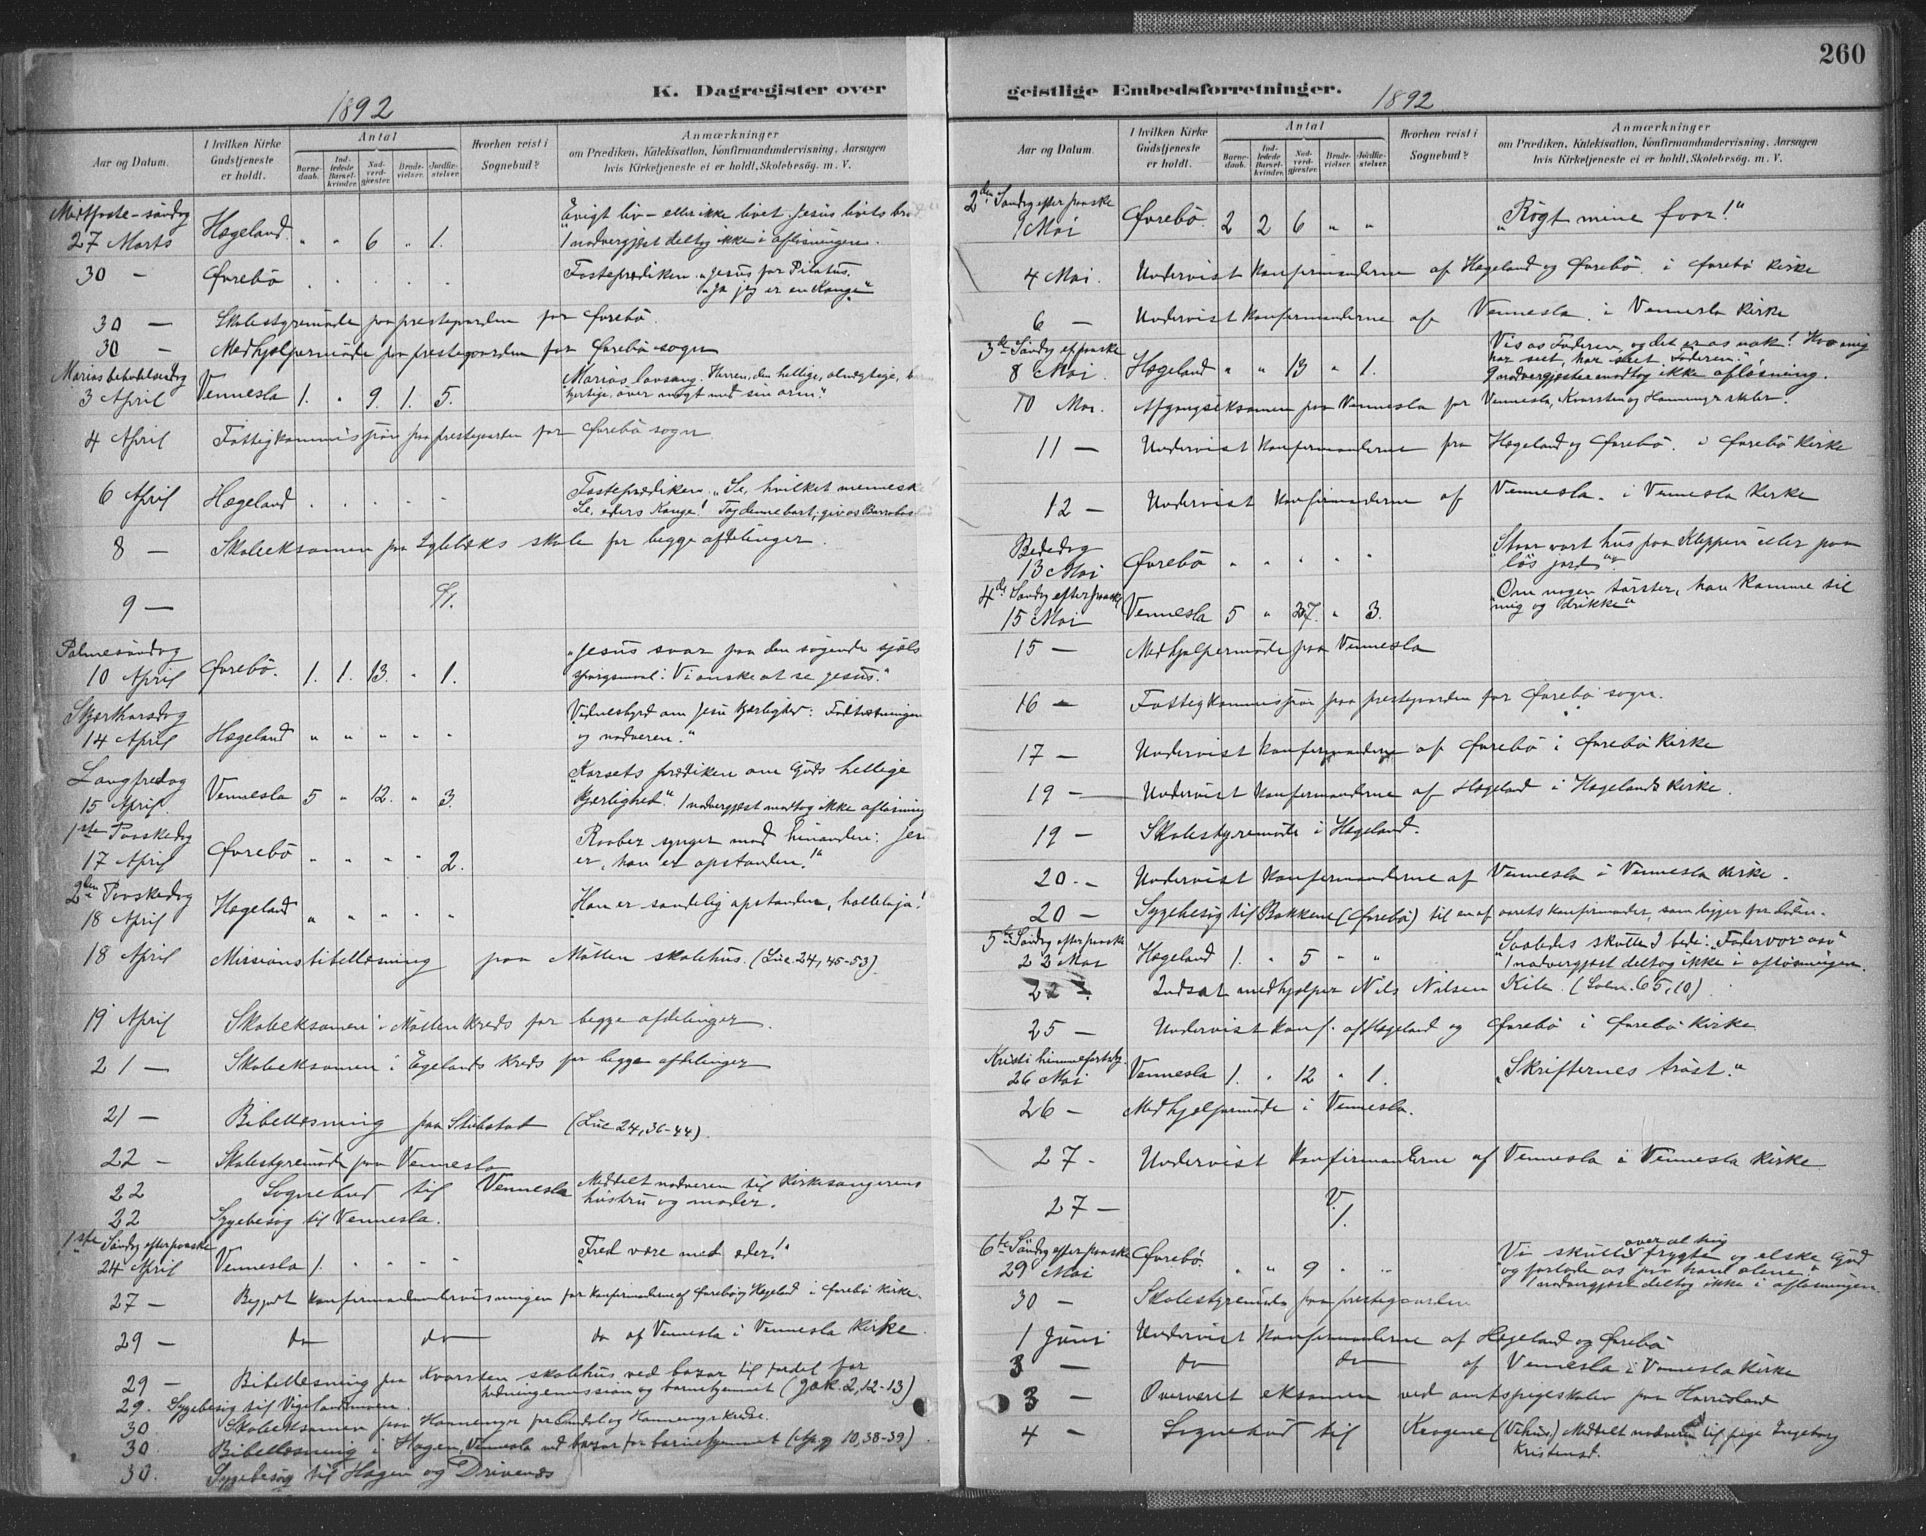 260
K. Dagregister over
1892
Aar og Datum.
I hvilken Kirke Gudstjeneste er holdt.
Antal
Barnedaab.
Indledede Barselkvinder.
Nadverdgjester.
Brudevielser.
Jordfæstelser.
Hvorhen reist i Sognebud?
Anmærkninger
om Prædiken, Katekisation, Konfirmandundervisning. Aarsagen hvis Kirketjeneste ei er holdt, Skolebesøg. m. V.
Midtfaste-søndag
27 Marts Hægeland " " 6 " 1. "Evigt liv – eller ikke livet. Jesus livets brød"
1 nadvergjest deltog ikke i afløsningen.
30 — Øvrebö . . . . . Fasteprædiken. "Jesus for Pilatus.
"Ja jeg er en Konge"
30 — Skolestyremöde paa prestegaarden for Øvrebö.
30 — Medhjælpermöde paa prestegaarden for Øvrebö sogn
Marias bebudelsesdag
3 April Vennesla 1. " 9. 1. 5. Marias lovsang. Herren, den hellige, almægtige,
over magt med sin arm."
4 April Fattigkommissjon paa prestegarden for Øvrebö sogn
6 April Hægeland . . . . . Fasteprædiken. "Se, hvilket menneske
Se, eders Konge! Tag denne bort; giv os Barrabas
8 — Skoleeksamen paa Eglebæks skole for begge afdelinger.
9 —
Palmesöndag
10 April Øvrebö. 1. 1. 13. " 1. "Jesus svar paa den søgende sjæls
spørgsmaal: Vi ønske at se Jesus."
Skjærthorsdag
14 April Hægeland " " " " " Vidnesbyrd om Jesu kjærlighed: Fodtvætningen
og nadveren."
Langfredag
15 April Vennesla 5 " 12. " 3. "Korsets prædiken om Guds hellige
kjærlighed." 1 nadvergjest modtog ikke afløsning
1ste Paaskedag
17 April Øvrebö " " " " 2. Raaber synger mod hinanden:
er, han er opstanden!"
2den Paaskedag
18 April Hægeland " " " " " "Han er sandelig opstanden, halleluja!
18 April Missionsbibellæsning paa Mållen skolehus. (Luc. 24, 45-53)
19 April Skoleeksamen i Mållen kreds for begge afdelinger.
21 — Skoleeksamen i Egelands kreds for begge afdelinger
21 — Bibellæsning paa Stubstad (Luc 24, 36-44).
22 — Skolestyremöde paa Vennesla
22 Sognebud til Vennesla Meddelt nadveren til Kirkesangerens
hustru og moder.
22 Sygebesög til Vennesla.
1ste Söndag efter paaske
24 April Vennesla 1. " " " " "Fred være med eder!"
27 — Begyndt konfirmandundervisningen for konfirmanderne af Øvrebö og Hægeland i Øvrebö kirke.
29 — do do do af Vennesla i Vennesla Kirke
29 — Bibellæsning paa Kvarsten skolehus ved bazar til fordel for
hedningemission og barnehjemmet (Jak. 2, 12-13)
29. Sygebesög til Vigelandsmoen.
30 Skoleeksamen paa Homme for og Hommes kreds.
30. Bibellæsning i Hagen, Vennesla ved bazar for barnehjemmet (Apg 10, 38-39).
30. Sygebesög til Hagen og Drivenes
geistlige Embedsforretninger.
1892
Aar og Datum.
I hvilken Kirke Gudstjeneste er holdt.
Antal
Barnedaab.
Indledede Barselkvinder.
Nadverdgjester.
Brudevielser.
Jordfæstelser.
Hvorhen reist i Sognebud?
Anmærkninger
om Prædiken, Katekisation, Konfirmandundervisning. Aarsagen hvis Kirketjeneste ei er holdt, Skolebesøg. m. V.
2den Søndag efter paaske
1 Mai Øvrebö 2 2 6 " " "Røgt mine faar!"
4 Mai. Undervist konfirmanderne af Hægeland og Øvrebö. i Øvrebö kirke
6 — Undervist konfirmanderne af Vennesla. i Vennesla kirke
3de Söndag ef paaske
8 Mai. Hægeland " " 13 " 1. Vis os Faderen, og det er os nok! Hvo mig
har seet, har seet Faderen."
9 nadvergjester modtog ikke afløsning.
10 Mai. Afgangseksamen paa Vennesla for Vennesla, Kvarsten og skoler.
11 — Undervist konfirmanderne fra Hægeland og Øvrebö. i Øvrebö kirke
12 — Undervist konfirmanderne af Vennesla. i Vennesla kirke
Bededag
13 Mai Øvrebö " " " " " "Staar vort hus paa Klippen eller paa
løs jord"
4de Søndag efter paaske
15 Mai Vennesla 5 " 37. " 3. Om nogen tørster, han komme til
mig og drikke"
15 — Medhjælpermöde paa Vennesla
16 — Fattigkommissjon paa prestegaarden for Øvrebö sogn.
17 — Undervist konfirmanderne af Øvrebö i Øvrebö kirke
19 — Undervist konfirmanderne af Hægeland i Hægelands kirke.
19 — Skolestyremöde i Hægeland.
20. — Undervist konfirmanderne af Vennesla i Vennesla kirke.
20 — Sygebesög til Bakkene (Øvrebö) til en af aarets konfirmander, som ligger for døden.
5te Söndag efter paaske
22 Mai Hægeland 1. " 5 " " "Saaledes skulle I bede: Fadervor osv"
1 nadvergjest deltog ikke i afløsningen.
22 — Indsat medhjælper Nils Nilsen Kile. (Salm. 65, 10)
25 — Undervist konf. af Hægeland og Øvrebö i Øvrebö kirke
Kristi himmelfartsdg.
26 Mai Vennesla 1. " 12 " 1. "Skrifternes tröst."
26 — Medhjælpermöde i Vennesla.
27 - Undervist konfirmanderne af Vennesla i Vennesla kirke
27 — V. 1.
6te Söndag efter paaske
29 Mai Øvrebö. " " 9 " " Vi skulle over al ting frygte og elske Gud
og forlade os paa ham alene."
1 nadvergjest deltog ikke i afløsningen.
30 — Skolestyremöde paa prestegaarden
1 Juni Undervist konfirmanderne af Hægeland og Øvrebö
3 — do do af Vennesla i Vennesla kirke
3 — Oververet eksamen ved amtspigeskolen paa Harrisland
4 — Sognebud til Krogene (Vehus) Meddelt nadveren til pige Ingeborg
Kristensd.